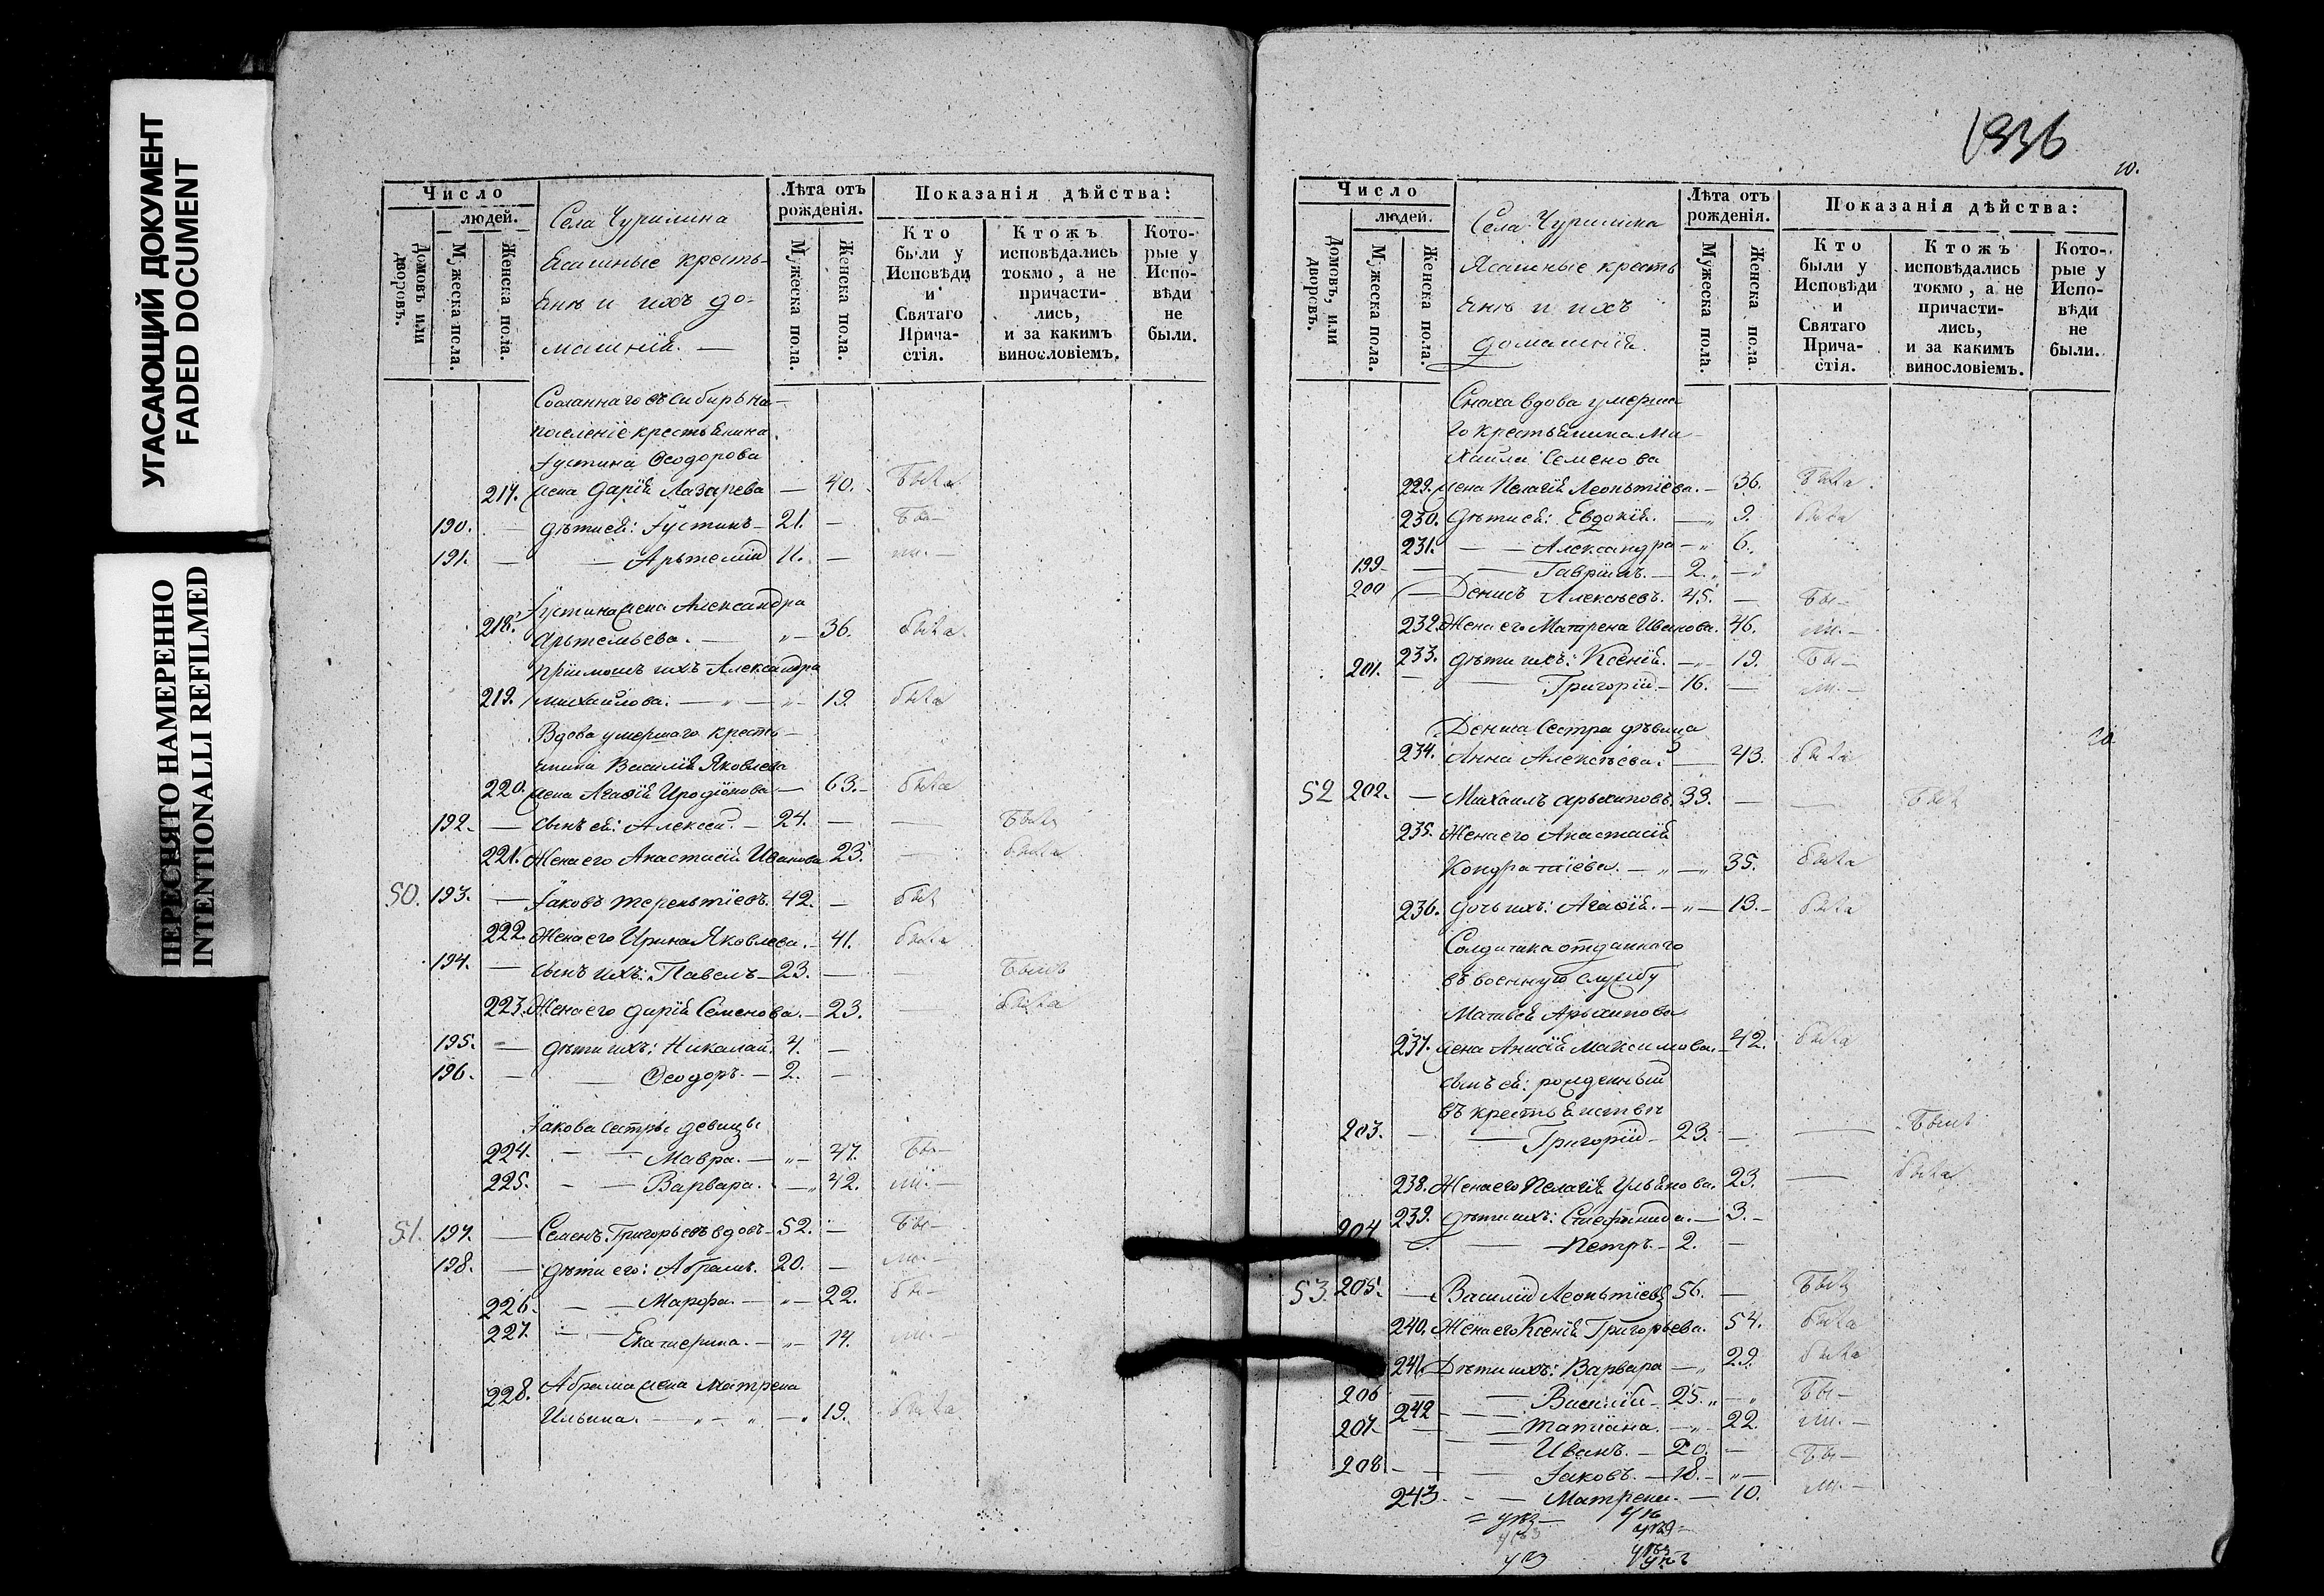 УГАСАЮЩИЙ ДОКУМЕНТ
FADED DOCUMENT
ПЕРЕСНЯТО НАМЕРЕННО
INTENTIONALLI REFILMED
Число
людей.
Домовъ или дворовъ.
Мужеска пола.
Женска пола.
Села Чурилина
Ясашные кресть-
яне и ихъ до-
машніе. —
Лѣта отъ рожденія.
Мужеска пола.
Женска пола.
Показанія дѣйства:
Кто были у Исповѣди и Святаго Прича-стія.
Ктожъ исповѣдались токмо, а не причасти-лись, и за какимъ винословіемъ.
Кото-рые у Испо-вѣди не были.
Сосланнаго въ Сибирь на
поселеніе крестьянина
Іустина Ѳеодорова
217. жена Дарія Лазарева — 40. была
190. — дѣти ей: Іустинъ — 21. — бы—
191. — — Артемій 11. — ли. —
Іустина жена Александра
218. Артемьева. — „ — 36. была
пріимышъ ихъ Александра
219. Михайлова. — „ — „ — 19. была
Вдова умершаго кресть-
янина Василія Яковлева
220. жена Агафія Иродіонова — 63. — была
192. — сынъ ей: Алексей. — 24. — — былъ
221. Жена его Анастасія Иванова 23. — была
50. 193. — Іаковъ Терентіевъ. 42. — былъ
222. Жена его Ирина Яковлева. — 41. была
194. — сынъ ихъ: Павелъ — 23. — былъ
223. Жена его Дарія Семенова. — 23. — была
195. — дѣти ихъ: Николай. 4. —
196. — — Ѳеодоръ. — 2. —
Іакова сестры девицы
224. — — Мавра. — „ — 47. бы—
225. — — Варвара. — „ 42. ли. —
51. 197. — Семенъ Григорьевъ вдовъ — 52. — бы—
198. — дѣти его: Абрамъ. 20. — ли. —
226. — — Марфа. — „ — 22. бы—
227. — — Екатерина. — „ — 14. ли. —
Абрама жена Матрена
228. Ильина. — „ — „ — „ 19. была
1836
10.
Число
людей.
Домовъ, или дворовъ.
Мужеска пола.
Женска пола.
Села Чурилина
Ясашные кресть
яне и ихъ
домашніе.
Лѣта отъ рожденія.
Мужеска пола.
Женска пола.
Показанія дѣйства:
Кто были у Исповѣди и Святаго Прича-стія.
Ктожъ исповѣдались токмо, а не причасти-лись, и за какимъ винословіемъ.
Кото-рые у Испо-вѣди не были.
Сноха вдова умерша
го крестьянина Ми-
хаила Семенова
229. жена Пелагія Леонтіева. — 36. была
230. дѣти ей: Евдокія. — „ 9. была
231. — — Александра — „ 6.
199 — — — Гавріилъ. — 2. „ — „
200 — Денисъ Алексѣевъ. 45. — бы—
232. Жена его Матрена Иванова. 46. ли. —
233. дѣти ихъ: Ксенія. — „ — 19. бы—
201. — — Григорій — 16. — ли. —
Дениса сестра дѣвица
234. Анна Алексѣева. — 43. была
52 202. — Михаилъ Архиповъ. 33. — — былъ
235. Жена его Анастасія
Кондратіева. — „ — „ 35. была
236. дочь ихъ: Агафія. — „ — 13. — была
Солдатка отданнаго
въ военную службу
Матвея Архипова
237. жена Анисія Максимова. — 42. была
сынъ ей: рожденный
въ крестьянствѣ
203. — — Григорій — 23. — — былъ
238. Жена его Пелагія Ульянова. 23. — была
239. дѣти ихъ: Степанида. — 3. —
204 — — Петръ. — 2. —
53. 205. — Василій Леонтіевъ 56. — былъ
240. Жена его Ксенія Григорьева. 54. была
241. Дѣти ихъ: Варвара — „ 29. была
206 — — Василій — 25. „ — „ бы—
242 — — Татіана. — „ 22. ли. —
207. — — Иванъ. — 20. —
208 — — Іаковъ. — 18. — „ — бы—
243. — — Матрена. — 10. ли. —